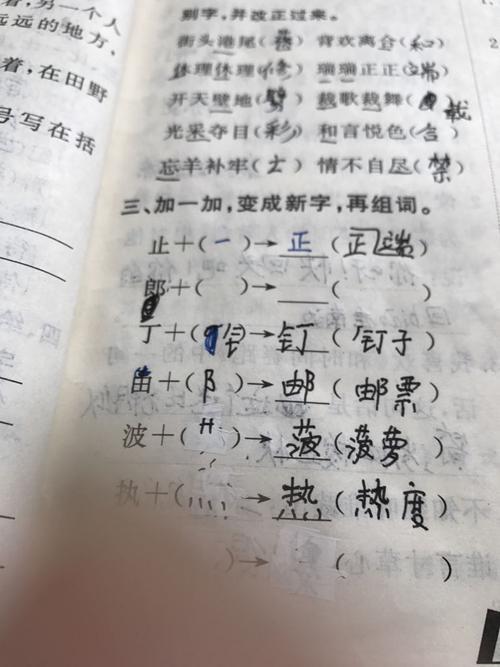 另一个人
远远的地方、
着,在田野
号写在括
别字,并改正过来。
街头港尾( ) 背欢离合(和)
休理休理(修) 瑞瑞正正(端)
开天壁地( ) 裁歌裁舞(载)
光采夺目(彩) 和言悦色( )
忘羊补牢( ) 情不自尽(禁)
三、加一加,变成新字,再组词。
止+(一)→正(正端)
郎+( )→ ( )
丁+(钅)→钉(钉子)
由+(阝)→邮(邮票)
波+(艹)→菠(菠萝)
执+(灬)→热(热度)
)→ ( )